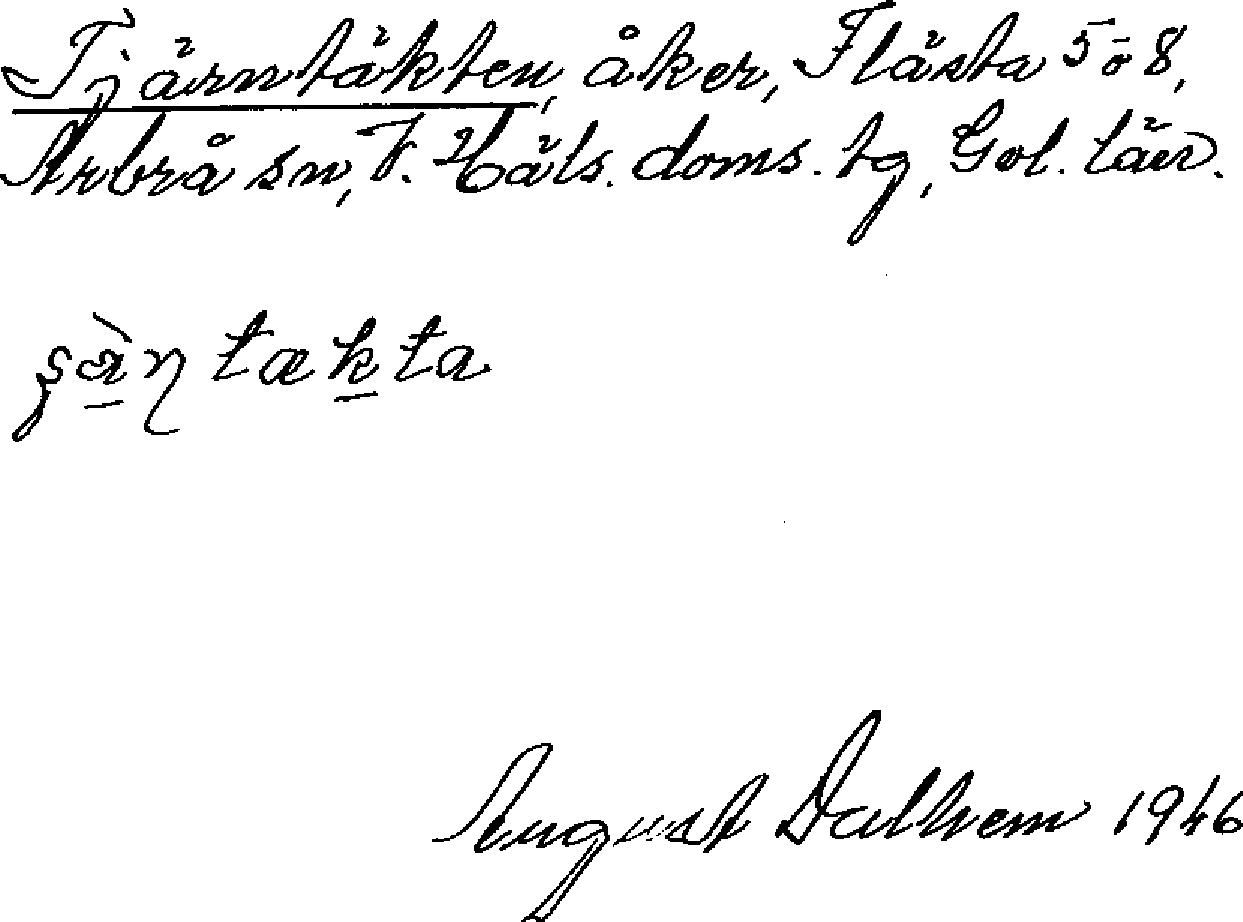 Tjärntäkten, åker, Flästa 5 o 8,
Arbrå sn, V. Häls. doms. tg, Gvl. län.
ʂàn̡tækta
August Dalhem 1946